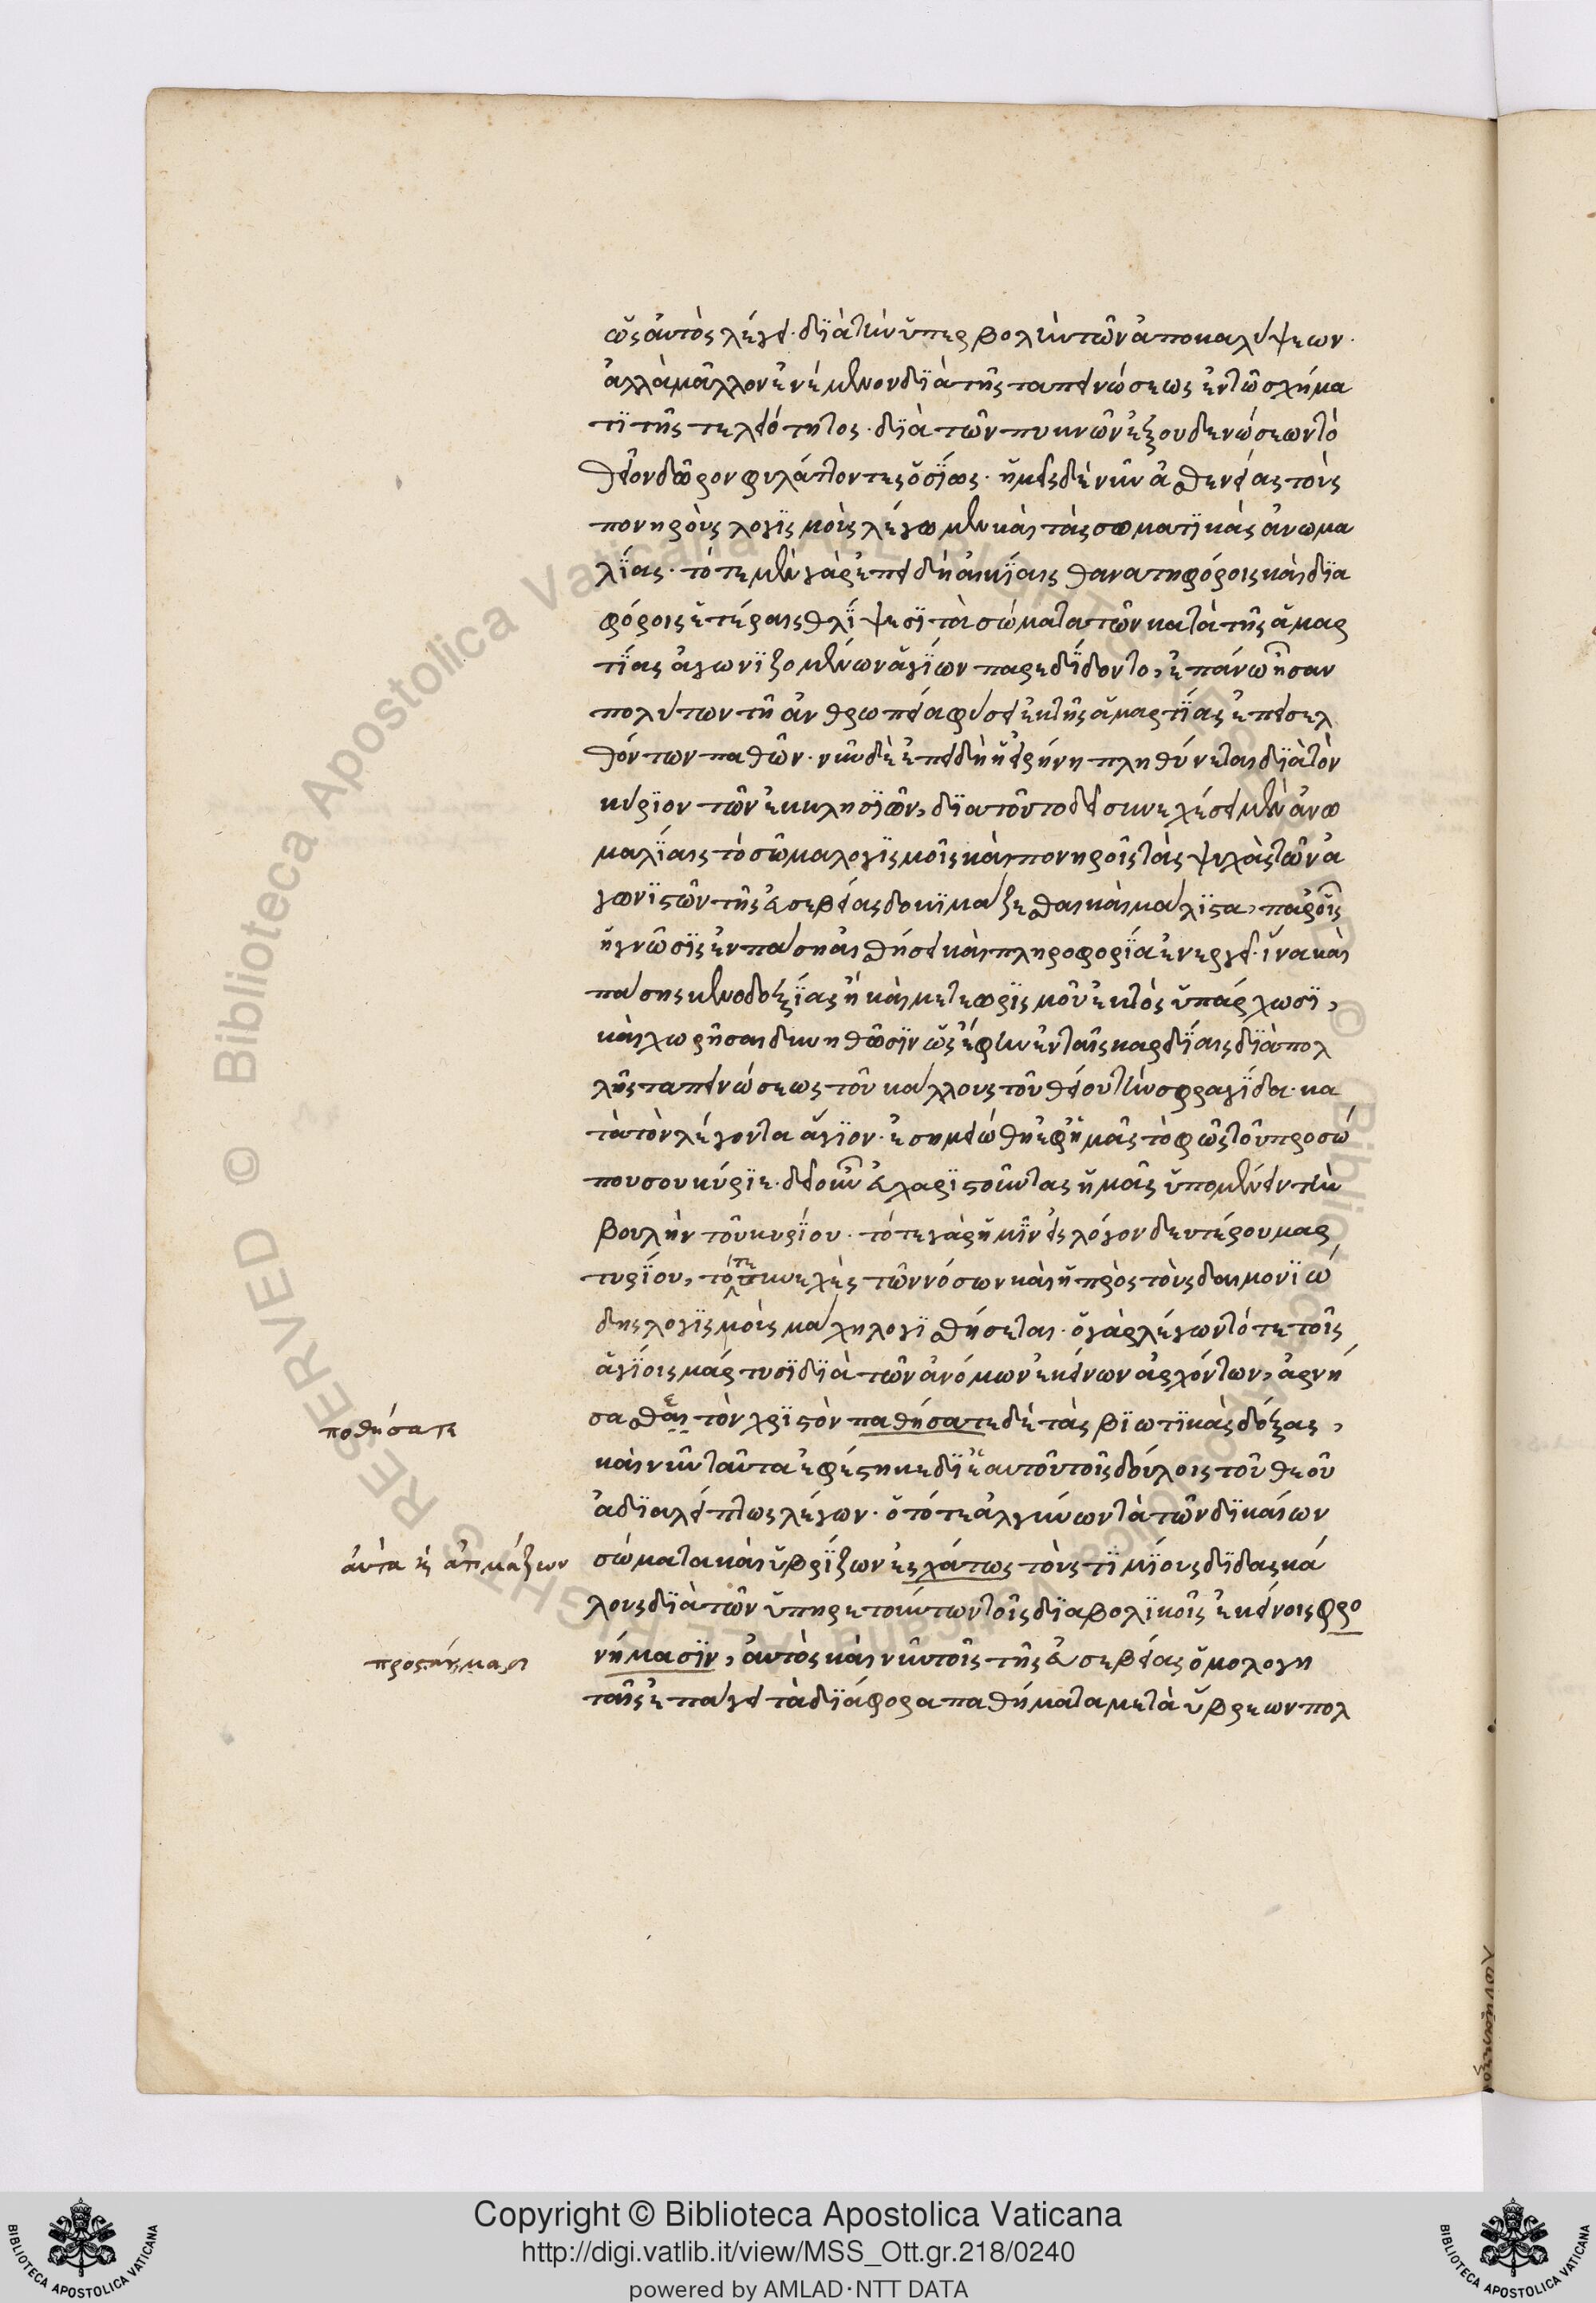 ὡς αὐτὸς λέγει· διὰ τὴν ὑπερβολὴν τῶν ἀποκαλύψεων·
ἀλλὰ μᾶλλον ἐνέμενον διὰ τῆς ταπεινώσεως ἐν τῶ σχήμα
τι τῆς τελειότητος· διὰ τῶν πυκνῶν ἐξουδενώσεων τὸ
θεῖον δῶρον φυλάττοντες ὁσίως· ἡμεῖς δὲ νῦν ἀσθενείας τοὺς
πονηροὺς λογισμοὺς λέγωμεν καὶ τὰς σωματικὰς ἀνωμα
λίας· τότε μὲν γὰρ ἐπειδὴ αἰκίαις θανατηφόροις καὶ δια
φόροις ἑτέραις θλίψεσι τὰ σώματα τῶν κατὰ τῆς ἁμαρ
τίας ἀγωνιζομένων ἁγίων παρεδίδοντο, ἐπάνω ἦσαν
πολὺ των τῆ ἀνθρωπεία φύσει ἐκ τῆς ἁμαρτίας ἐπεισελ
θόντων παθῶν· νῦν δὲ ἐπειδὴ ἡ εἰρήνη πληθύνεται διὰ τὸν
κύριον τῶν ἐκκλησιῶν, δια τοῦτο δεῖ συνεχέσει μὲν ἀνω
μαλίαις τὸ σῶμα λογισμοῖς καὶ πονηροῖς τὰς ψυχὰς τῶν ἀ
γωνιστῶν τῆς εὐσεβείας δοκιμάζεσθαι καὶ μάλιστα, παρ' οἷς
ἡ γνῶσις ἐν πάση αἰσθήσει καὶ πληροφορία ἐνεργεῖ· ἵνα καὶ
πάσης κενοδοξίας ἢ καὶ μετεωρισμοῦ ἐκτὸς ὑπάρχωσι,
καὶ χωρῆσαι δυνηθῶσιν ὡς ἔφην ἐν ταῖς καρδίαις διὰ πολ
λῆς ταπεινώσεως τοῦ κάλλους τοῦ θείου τὴν σφραγίδα· κα
τὰ τὸν λέγοντα ἅγιον· ἐσημειώθη ἐφ' ἡμᾶς τὸ φῶς τοῦ προσώ
που σου κύριε· δεῖ οὖν εὐχαριστοῦντας ἡμᾶς ὑπομένειν τὴν
βουλὴν τοῦ κυρίου· τότε γὰρ ἡμῖν εἰς λόγον δευτέρου μαρ
τυρίου, τό τε συνεχὲς τῶν νόσων καὶ ἡ πρὸς τοὺς δαιμονιώ
δης λογισμοὺς μάχη λογισθήσεται· ὁ γὰρ λέγων τότε τοῖς
ἁγίοις μάρτυσι διὰ τῶν ἀνόμων ἐκείνων ἀρχόντων, ἀρνή
σασθαι τὸν χριστὸν παθήσατε δὲ τὰς βιωτικὰς δόξας,
ποθήσατε
καὶ νῦν ταῦτα ἐφέστηκε δι' ἑαυτοῦ τοῖς δούλοις τοῦ θεοῦ
ἀδιαλείπτως λέγων· ὁ τότε ἀλγύνων τὰ τῶν δικαίων
σώματα καὶ ὑβρίζων ἐσχάτως τοὺς τιμίους διδασκά
λους διὰ τῶν ὑπηρετούντων τοῖς διαβολικοῖς ἐκείνοις φρο
νήμασιν, αὐτὸς καὶ νῦν τοῖς τῆς εὐσεβείας ὁμολογη
ταῖς ἐπάγει τὰ διάφορα παθήματα μετὰ ὕβρεων πολ
Copyright © Biblioteca Apostolica Vaticana
http://digi.vatlib.it/view/MSS_Ott.gr.218/0240
powered by AMLAD·NTT DATA